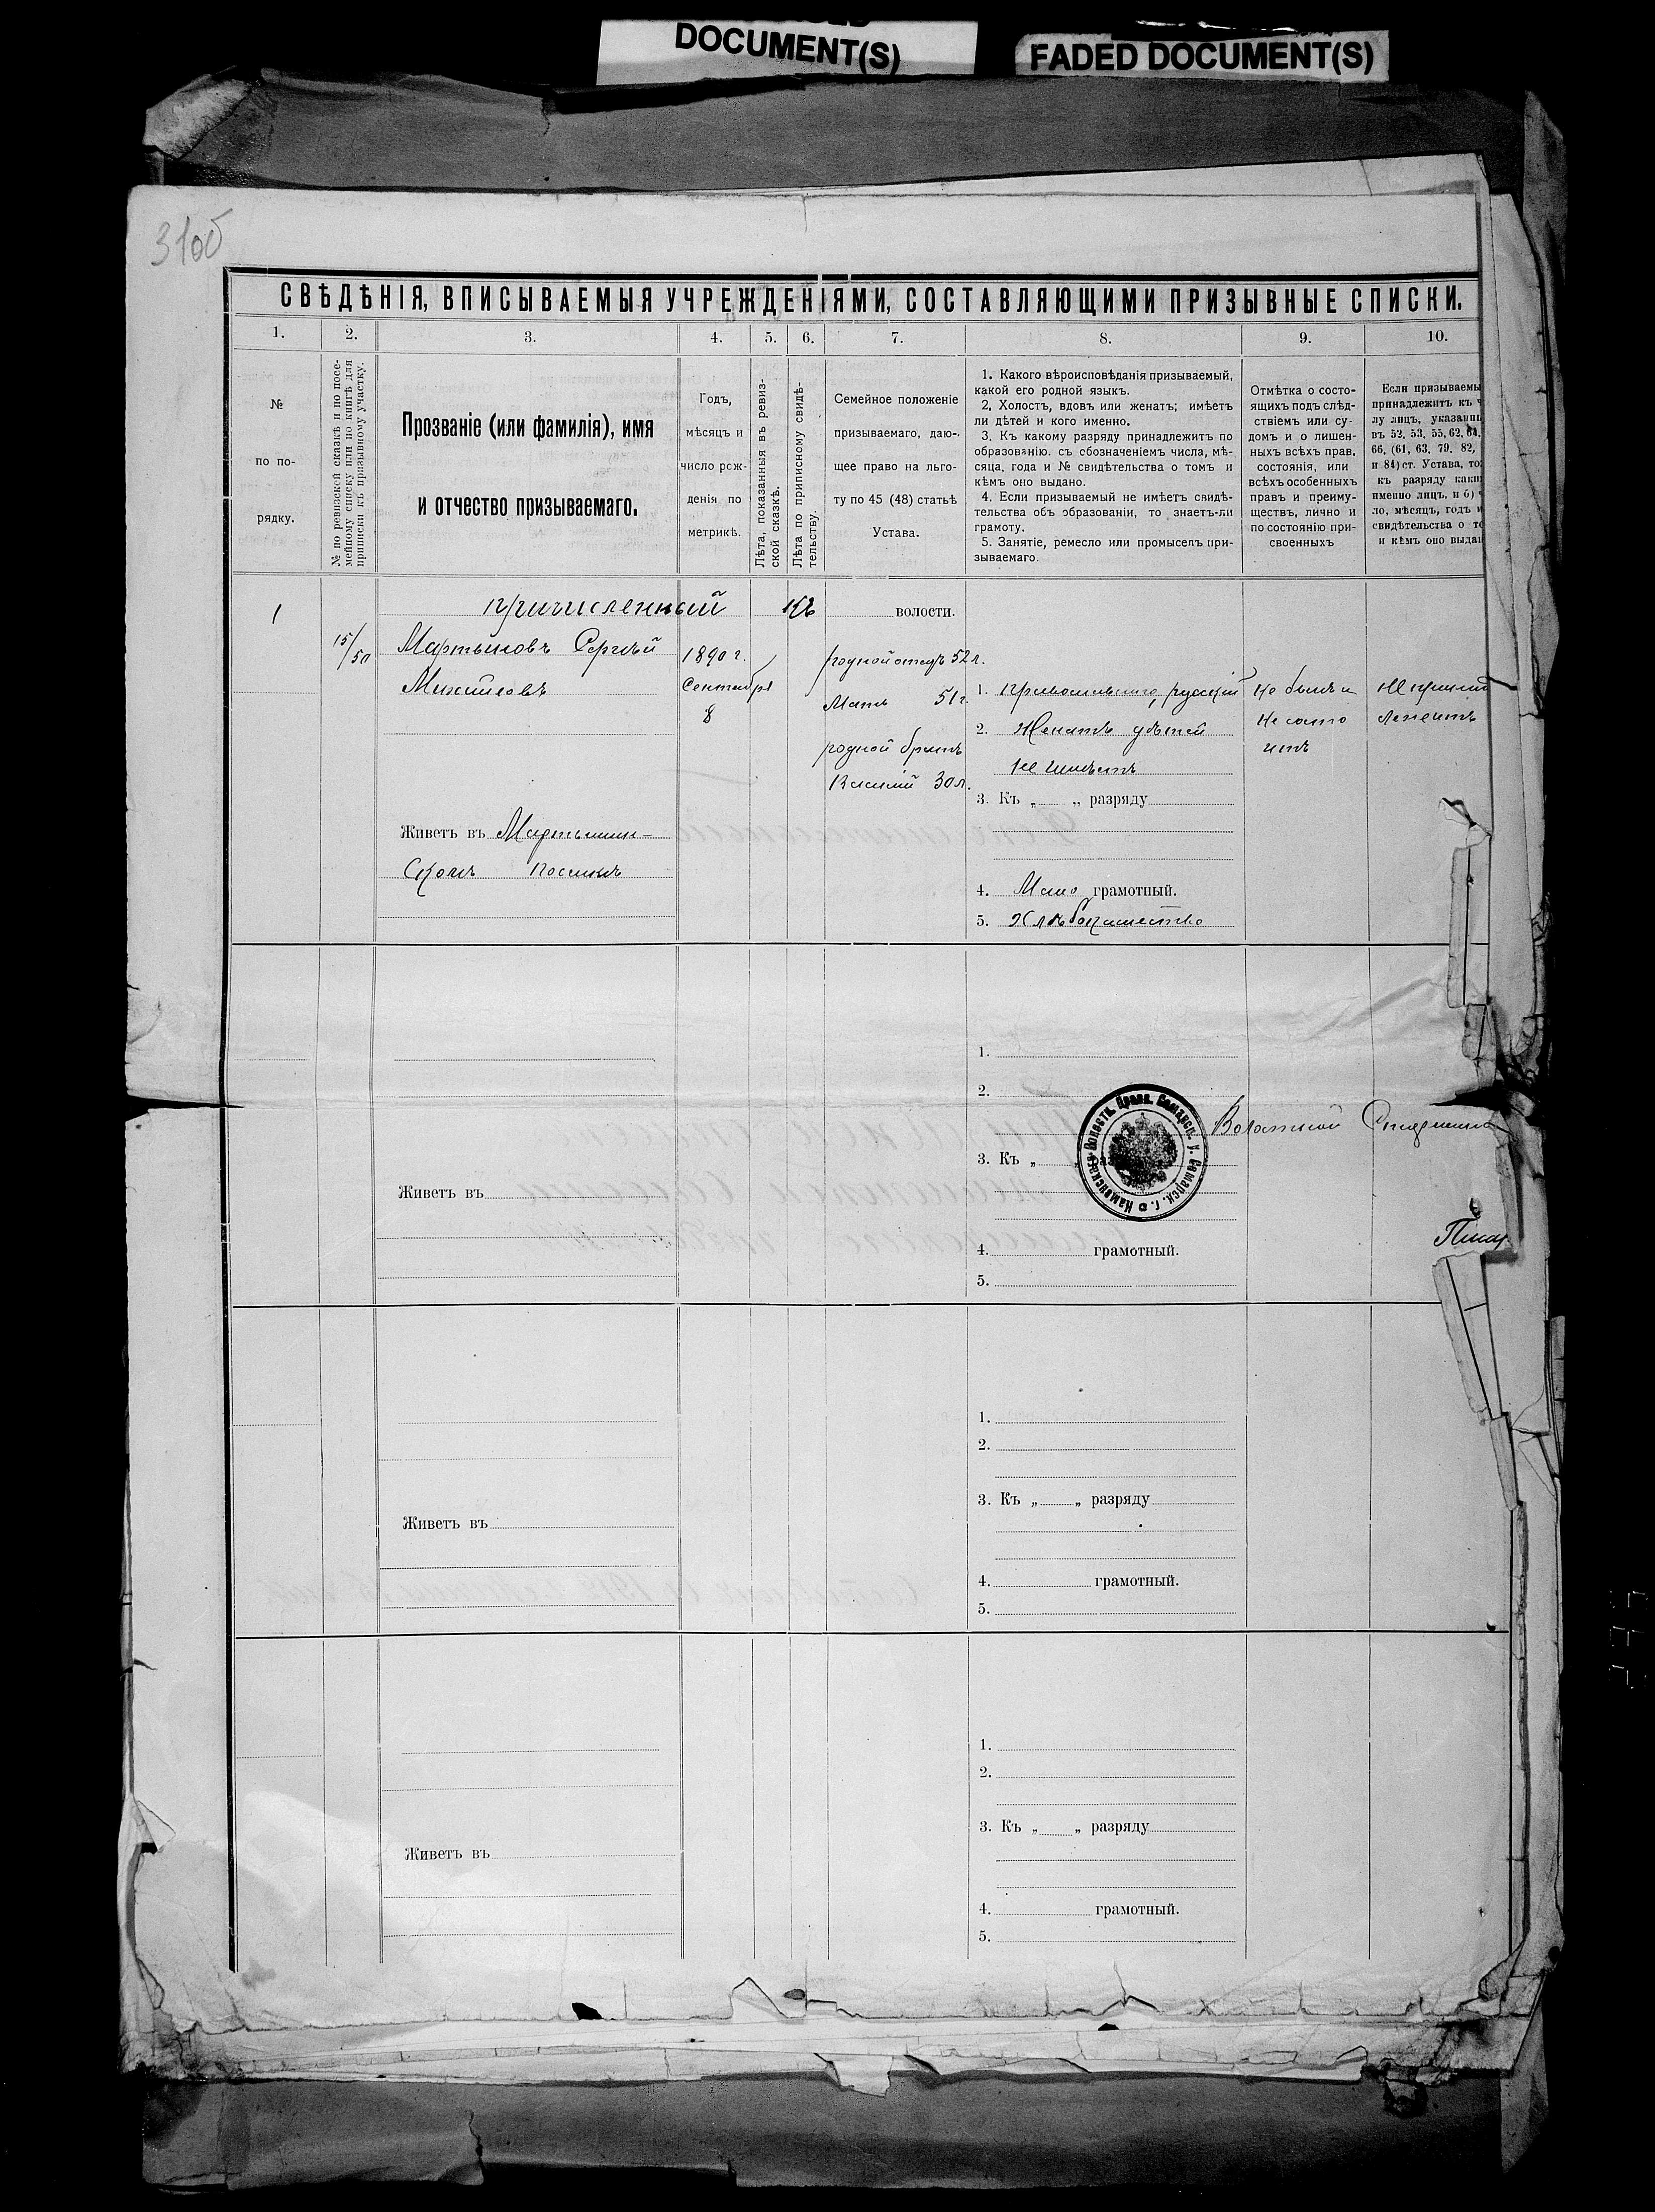 DOCUMENT(S)
FADED DOCUMENT(S)
31об
СВѢДѢНІЯ, ВПИСЫВАЕМЫЯ УЧРЕЖДЕНІЯМИ, СОСТАВЛЯЮЩИМИ ПРИЗЫВНЫЕ СПИСКИ.
1. 2. 3. 4. 5. 6. 7. 8. 9. 10.
№
по по-
рядку.
№ по ревизской сказкѣ и по посе-
мейному списку или по книгѣ для
приписки къ призывному участку.
Прозваніе (или фамилія), имя
и отчество призываемаго.
Годъ,
мѣсяцъ и
число рож-
денія по
метрикѣ.
Лѣта, показанныя въ ревиз-
ской сказкѣ.
Лѣта по приписному свидѣ-
тельству.
Семейное положеніе
призываемаго, даю-
щее право на льго-
ту по 45 (48) статьѣ
Устава.
1. Какого вѣроисповѣданія призываемый,
какой его родной языкъ.
2. Холостъ, вдовъ или женатъ; имѣетъ
ли дѣтей и кого именно.
3. Къ какому разряду принадлежитъ по
образованію, съ обозначеніемъ числа, мѣ-
сяца, года и № свидѣтельства о томъ и
кѣмъ оно выдано.
4. Если призываемый не имѣетъ свидѣ-
тельства объ образованіи, то знаетъ-ли
грамоту.
5. Занятіе, ремесло или промыселъ при-
зываемаго.
Отмѣтка о состо-
ящихъ подъ слѣд-
ствіемъ или су-
домъ и о лишен-
ныхъ всѣхъ прав.
состоянія, или
всѣхъ особенныхъ
правъ и преиму-
ществъ, лично и
по состоянію при-
своенныхъ
Если призываемы
принадлежитъ къ ч
лу лицъ, указанн
въ 52, 53, 55, 62, 64,
66, (61, 63, 79, 82,
и 84) ст. Устава, то:
къ разряду каки
именно лицъ, и б) ч
ло, мѣсяцъ, годъ и
свидѣтельства о то
и кѣмъ оно выдан
1
причисленный къ волости.
15/50
Мартыновъ Сергѣй
Михайловъ
1890 г.
Сентября
8
родной отецъ 52 л.
Мать 51 г.
родной братъ
Василій 30 л.
1. Православнаго, русскій
2. Женатъ дѣтей
не имѣетъ
3. Къ „ „ разряду
4. Мало грамотный.
5. Хлѣбопашество
Не былъ и
не состо
итъ
Не принад
лежитъ
Живетъ въ Мартынин-
Скомъ поселкѣ
1.
2.
3. Къ „
4. грамотный.
5.
Живетъ въ
Каменскаго Волостн. Правл. Самарск. у. Самарск. г.
Волостной Старшина
Писар
1.
2.
3. Къ „ „ разряду
Живетъ въ
4. грамотный.
5.
1.
2.
3. Къ „ „ разряду
Живетъ въ
4. грамотный.
5.